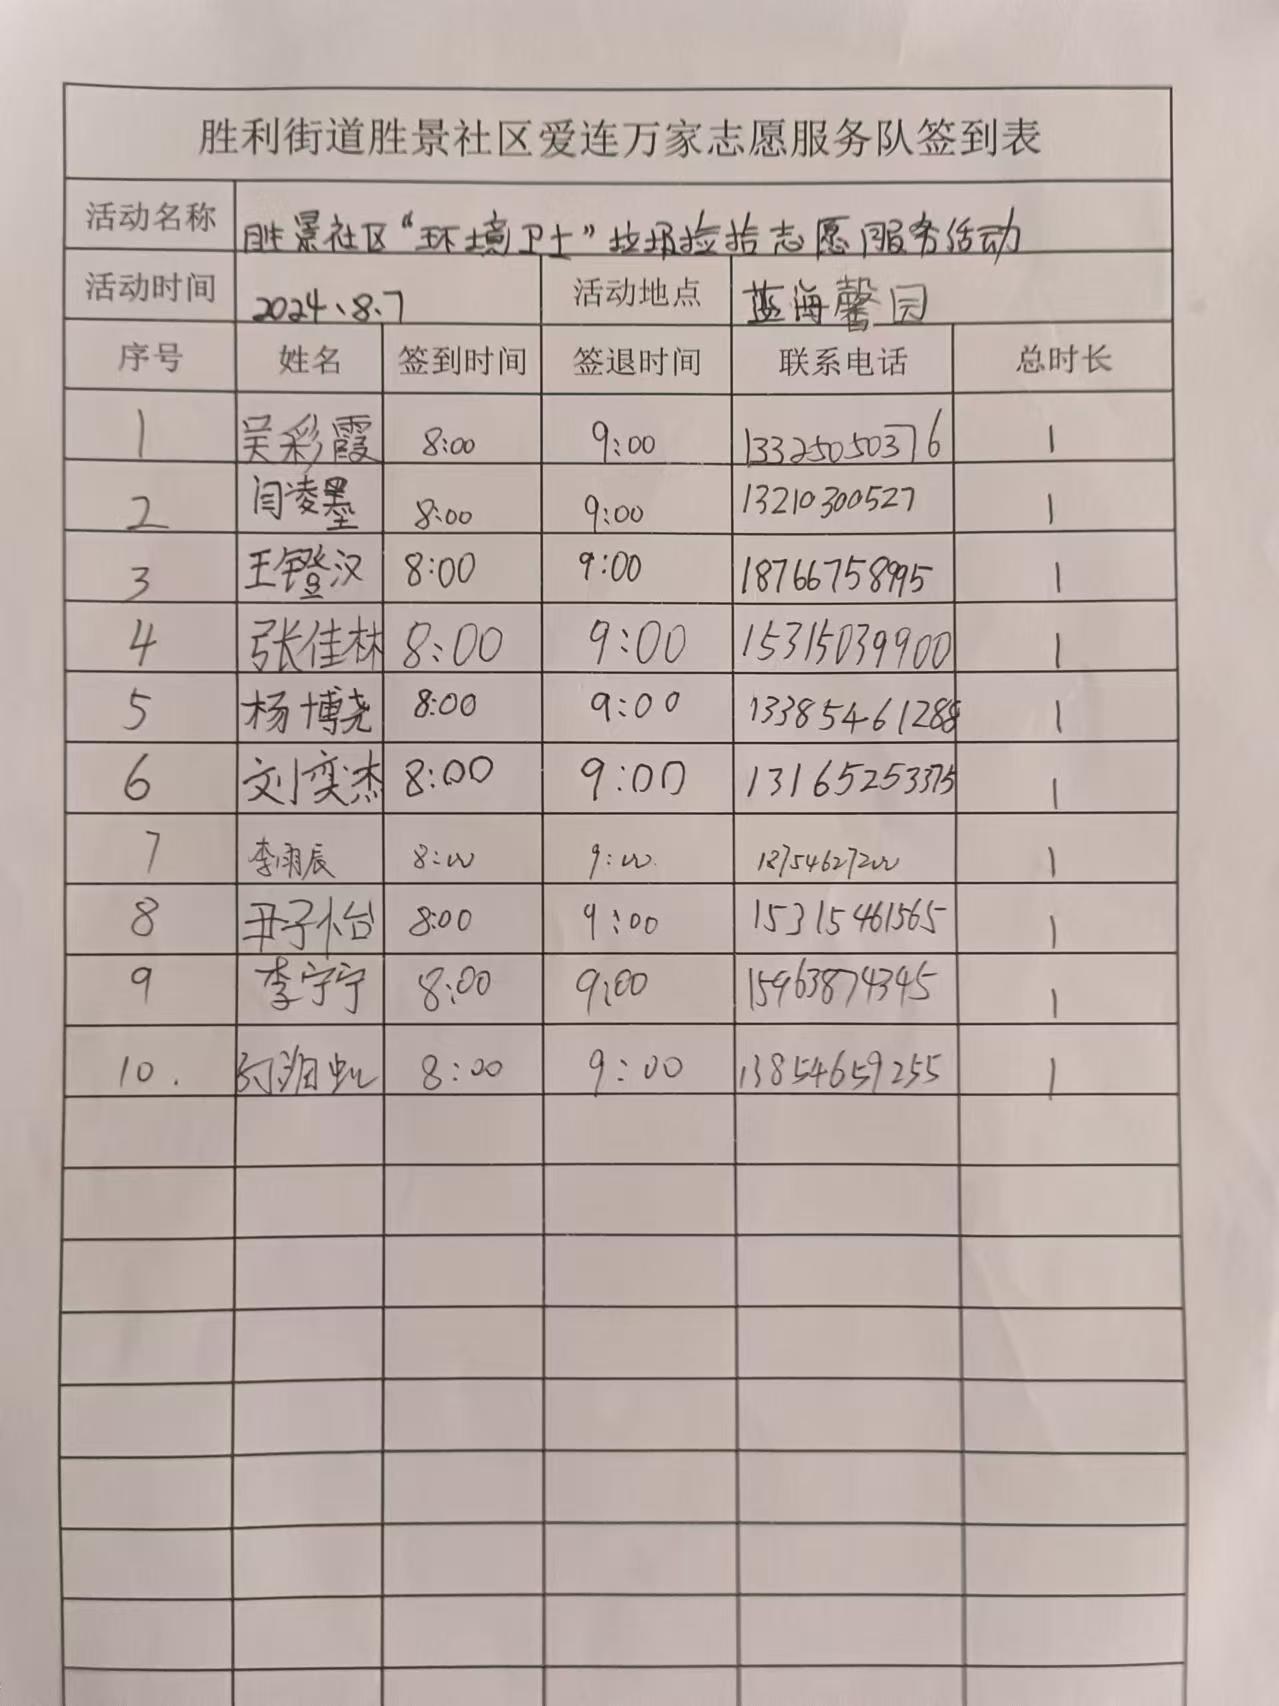 胜利街道胜景社区爱连万家志愿服务队签到表
活动名称 胜景社区“环境卫士”垃圾捡拾志愿服务活动
活动时间 2024、8、7 活动地点 蓝海馨园
序号 姓名 签到时间 签退时间 联系电话 总时长
1 吴彩霞 8:00 9:00 13325050376 1
2 闫凌墨 8:00 9:00 13210300527 1
3 王镫汉 8:00 9:00 18766758995 1
4 张佳林 8:00 9:00 15315039900 1
5 杨博尧 8:00 9:00 13385461288 1
6 刘奕杰 8:00 9:00 13165253375 1
7 李雨辰 8:00 9:00 18754627200 1
8 丑子怡 8:00 9:00 15315461565 1
9 李宁宁 8:00 9:00 15963874345 1
10. 8:00 9:00 13854659255 1